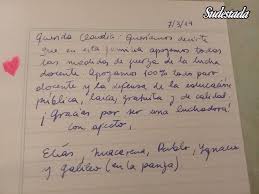 Sudestada
7/3/19
Querida Claudia: Queríamos decirte
que en esta familia apoyamos todas
las medidas de fuerza de la lucha
docente. Apoyamos 100% todo paro
docente y la defensa de la educación
pública, laica, gratuita y de calidad.
¡Gracias por ser una luchadora!
con afecto,
Elías, Macarena, Pablo, Ignacio
y Galileo (en la panza)